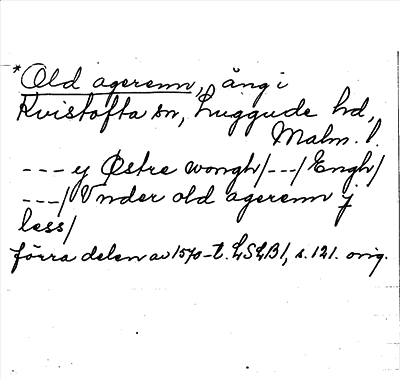 *Old agerenn, äng i
Kvistofta sn, Luggude hd,
Malm. l.
--- y Østre wongh/---/Engh/
---/Vnder old agerenn j
less/
förra delen av 1570-t. LSLB1, s. 121. orig.